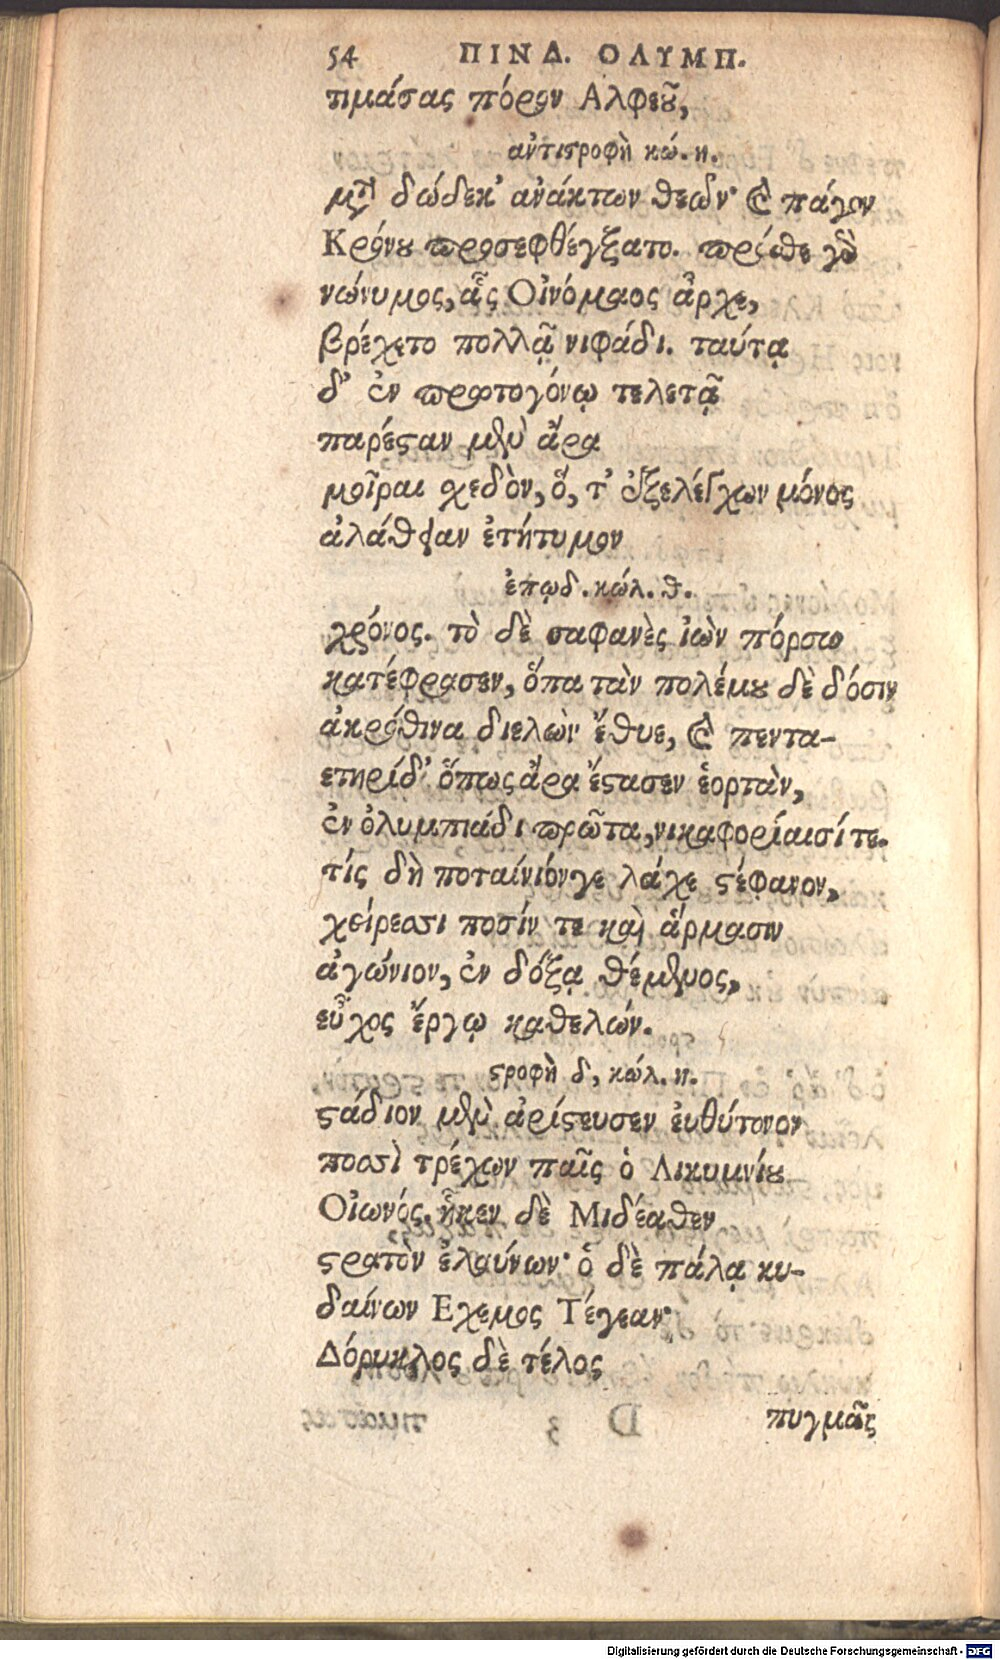 54 ΠΙΝΔ. ΟΛΥΜΠ.
τιμάσας πόρον Αλφειοῦ,
ἀντιστροφὴ κώ. η.
μετὰ δώδεκ' ἀνάκτων θεῶν· καὶ πάγον
Κρόνου προσεφθέγξατο. πρόσθε γὰρ
νώνυμος, ἇς Οἰνόμαος ἆρχε,
βρέχετο πολλᾷ νιφάδι. ταύτᾳ
δ' ἐν πρωτογόνῳ τελετᾷ
παρέσταν μὲν ἄρα
μοῖραι σχεδὸν, ὅ, τ' ἐξελέγχων μόνος
ἀλάθειαν ἐτήτυμον
ἐπῳδ. κώλ. θ.
χρόνος. τὸ δὲ σαφανὲς ἰὼν πόρσω
κατέφρασεν, ὅπα τὰν πολέμου δὲ δόσιν
ἀκρόθινα διελὼν ἔθυε, καὶ πεντα-
ετηρίδ' ὅπως ἄρα ἔστασεν ἑορτὰν,
ἐν ὀλυμπιάδι πρῶτα, νικαφορίαισί τε.
τίς δὴ ποταίνιόνγε λάχε στέφανον,
χείρεσσι ποσίν τε καὶ ἅρμασιν
ἀγώνιον, ἐν δόξᾳ θέμενος,
εὖχος ἔργῳ καθελών.
στροφὴ δ, κώλ. η.
στάδιον μὲν ἀρίστευσεν ἐυθύτονον
ποσσὶ τρέχων παῖς ὁ Λικυμνίου
Οἰωνός. ἧκεν δὲ Μιδέαθεν
στρατὸν ἐλαύνων· ὁ δὲ πάλᾳ κυ-
δαίνων Εχεμος Τέγεαν·
Δόρυκλος δὲ τέλος
πυγμᾶς
Digitalisierung gefördert durch die Deutsche Forschungsgemeinschaft - DFG